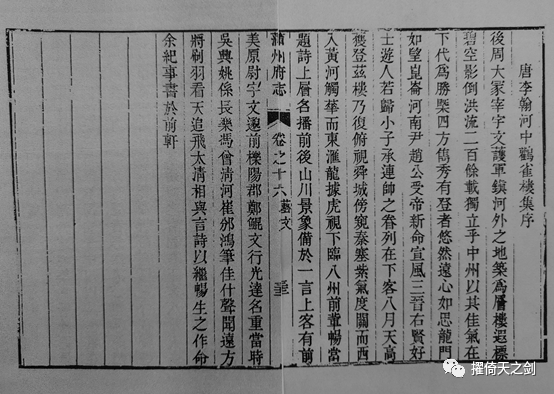 唐李翰河中鸛雀樓集序
後周大冢宰宇文護軍鎭河外之地築爲層樓遐標
碧空影倒洪流二百餘載獨立乎中州以其佳氣在
下代爲勝槩四方雋秀有登者悠然遠心如思龍門
如望崑崙河南尹趙公受帝新命宣風三晉右賢好
士遊人若歸小子承連帥之眷列在下客八月天高
獲登茲樓乃復俯視舜城傍窺秦塞紫氣度關而西
入黃河觸華而東滙龍據虎視下臨八州前輩暢當
題詩上層名播前後山川景象備於一言上客有前
蒲州府志 卷之十六 藝文
美原尉宇文邈前櫟陽郡鄭鯤文行光達名重當時
吳興姚係長樂馮曾清河崔邠鴻筆佳什聲聞遠方
將刷羽看天追飛太清相與言詩以繼暢生之作命
余紀事書於前軒
擢倚天之剑